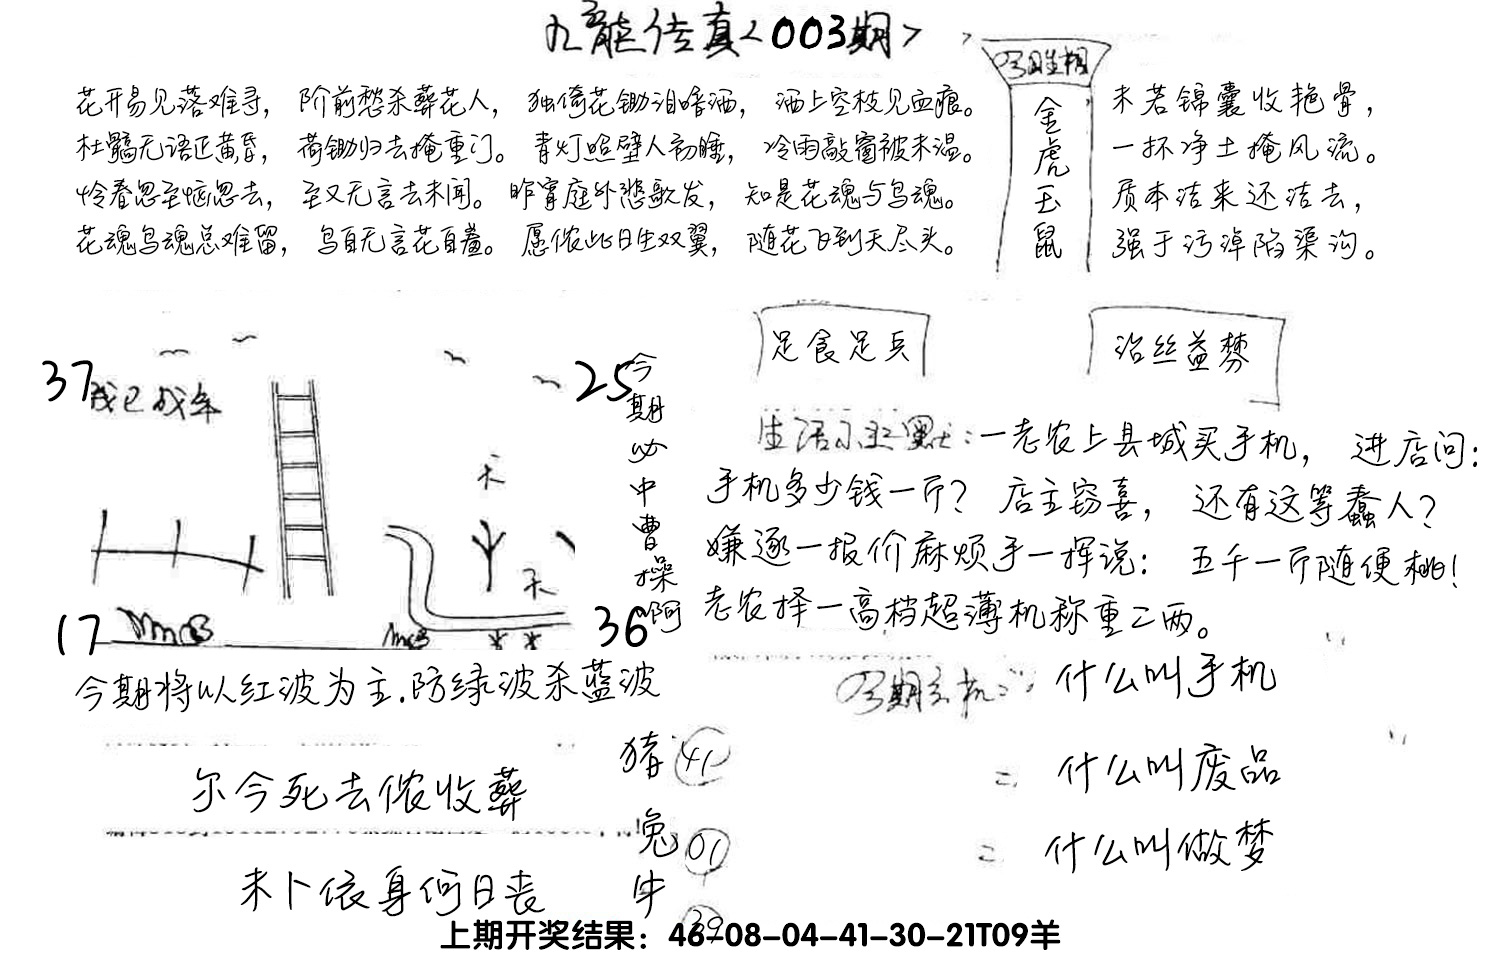 九龍传真<003期>
花开易见落难寻，阶前愁杀葬花人，独倚花锄泪暗洒，洒上空枝见血痕。
杜鹃无语正黄昏，荷锄归去掩重门。青灯照壁人初睡，冷雨敲窗被未温。
怜春忽至恼忽去，至又无言去未闻。昨宵庭外悲歌发，知是花魂与鸟魂。
花魂鸟魂总难留，鸟自无言花自羞。愿侬此日生双翼，随花飞到天尽头。
03期生相
金虎玉鼠
未若锦囊收艳骨，
一抔净土掩风流。
质本洁来还洁去，
强于污淖陷渠沟。
37
25
17
36
天
天
今期必中曹操啊
足食足兵
治丝益棼
生活小幽默：一老农上县城买手机，进店问：
手机多少钱一斤？店主窃喜，还有这等蠢人？
嫌逐一报价麻烦手一挥说：五千一斤随便挑！
老农择一高档超薄机称重二两。
今期将以红波为主.防绿波杀蓝波
尔今死去侬收葬
未卜侬身何日丧
猪 41
兔 01
牛 39
03期玄机：什么叫手机
= 什么叫废品
= 什么叫做梦
上期开奖结果：46-08-04-41-30-21T09羊